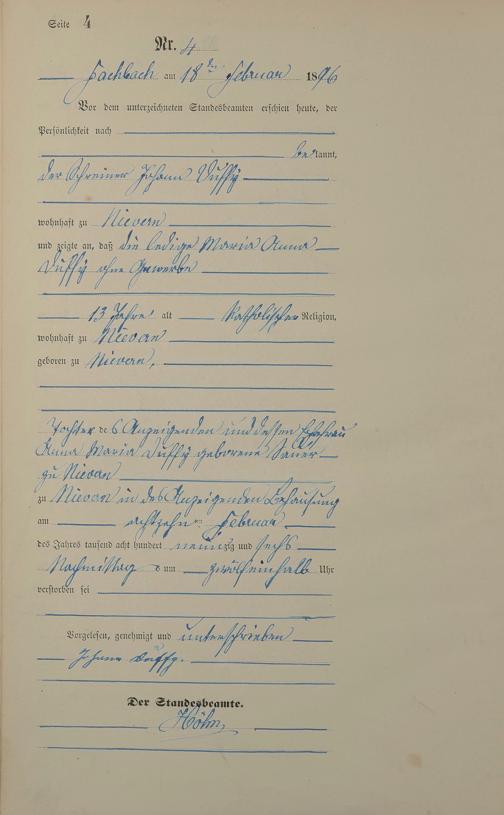 Seite 4
Nr. 4
Fachbach am 18ten Februar 1896
Vor dem unterzeichneten Standesbeamten erschien heute, der
Persönlichkeit nach
bekannt,
der Schreiner Johann Duffy
wohnhaft zu Nievern
und zeigte an, daß die ledige Maria Anna
Duffy ohne Gewerbe
13 Jahre alt katholischer Religion,
wohnhaft zu Nievern
geboren zu Nievern,
Tochter des Anzeigenden und dessen Ehefrau
Anna Maria Duffy geborene Sauer
zu Nievern
zu Nievern in des Anzeigenden Behausung
am achtzehn ten Februar
des Jahres tausend acht hundert neunzig und sechs
Nachmittag s um zwölfeinhalb Uhr
verstorben sei
Vorgelesen, genehmigt und unterschrieben
Johann Duffy.
Der Standesbeamte.
Höhn